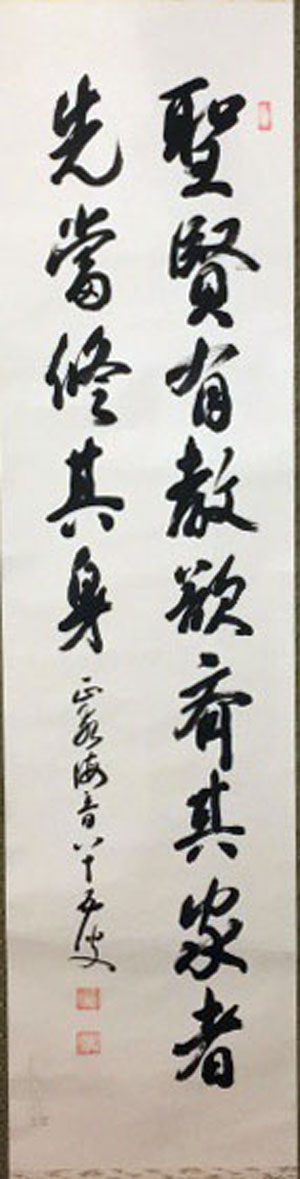 聖賢有教欲齊其家者
先當修其身
海音八十五叟